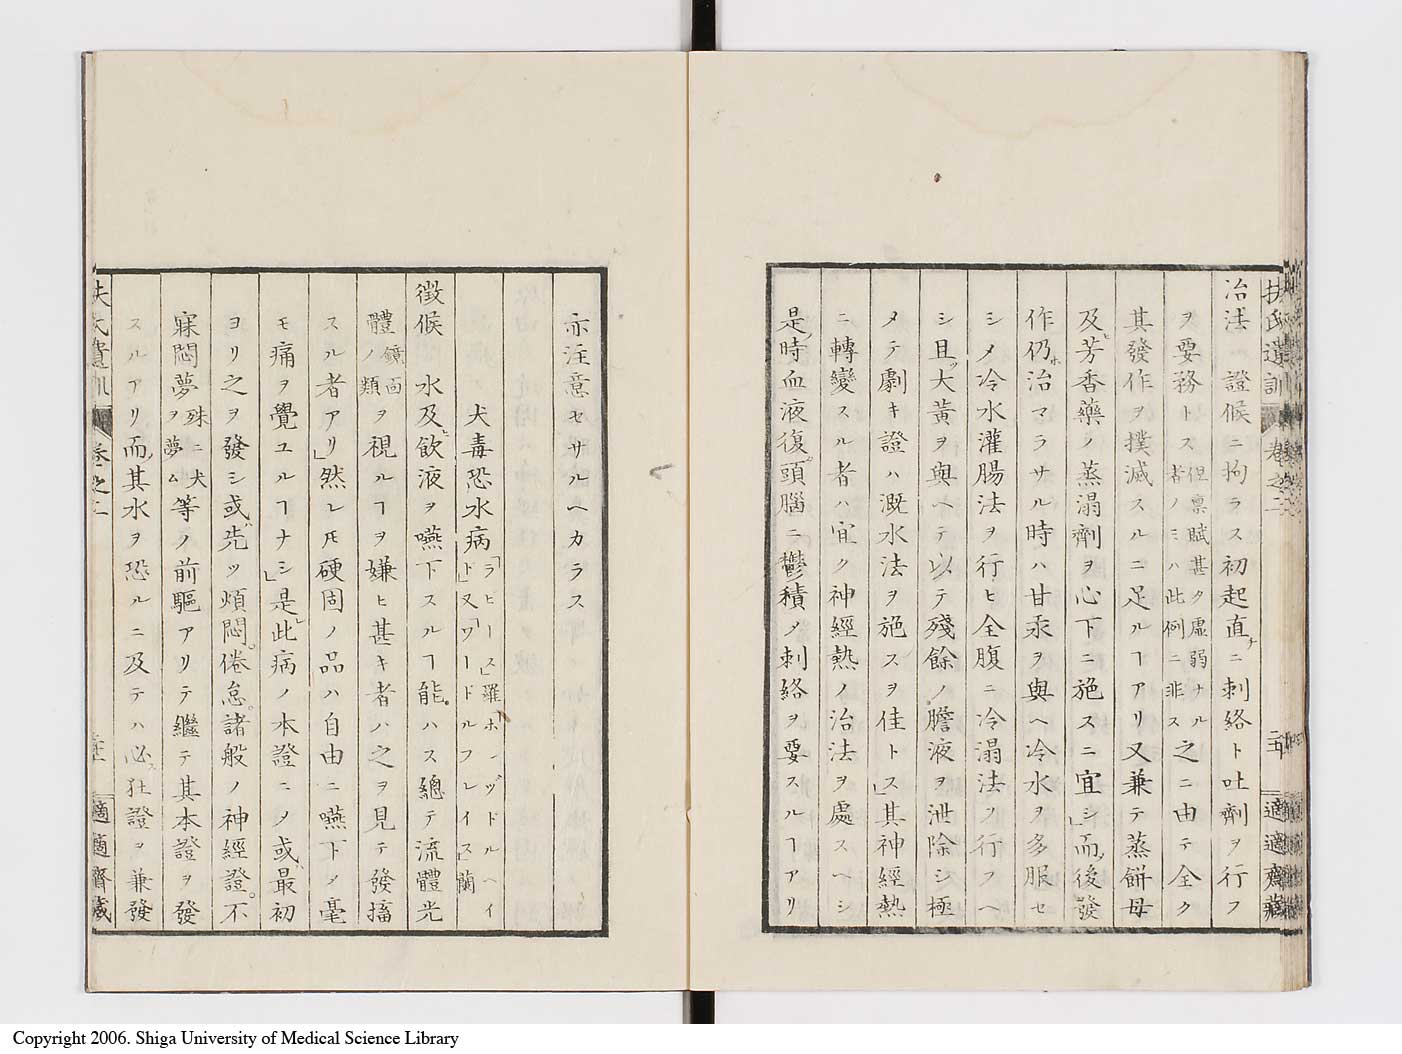 扶氏遺訓 卷之二 二十 適適齋藏
治法ハ證候ニ拘ラス初起直チニ刺絡ト吐劑ヲ行フ
ヲ要務トス但禀賦甚タ虛弱ナル者ノミハ此例ニ非ス之ニ由テ全ク
其發作ヲ撲滅スルニ足ルヿアリ又兼テ蒸餅母
及ヒ芳香藥ノ蒸溻劑ヲ心下ニ施スニ宜シ」而ノ後發
作仍ホ治マラサル時ハ甘汞ヲ與ヘ冷水ヲ多服セ
シメ冷水灌腸法ヲ行ヒ全腹ニ冷溻法ヲ行フヘ
シ且ツ大黃ヲ與ヘテ以テ殘餘ノ膽液ヲ泄除シ極
メテ劇キ證ハ漑水法ヲ施スヲ佳トス」其神經熱
ニ轉變スル者ハ宜ク神經熱ノ治法ヲ處スヘシ
是時血液復タ頭腦ニ鬱積ノ刺絡ヲ要スルヿアリ
亦注意セサルヘカラス
犬毒恐水病「ラビース」羅「ホンヅドルヘイド」又「ワートルフレイス」蘭
徵候 水及ヒ飮液ヲ嚥下スルヿ能ハス總テ流體光
體鏡面ノ類ヲ視ルヿヲ嫌ヒ甚キ者ハ之ヲ見テ發搐
スル者アリ」然レ𪜈硬固ノ品ハ自由ニ嚥下ノ毫
モ痛ヲ覺ユルヿナシ」是レ此病ノ本證ニノ或ハ最初
ヨリ之ヲ發シ或ハ先ツ煩悶。倦怠。諸般ノ神經證。不
寐悶夢殊ニ犬ヲ夢ム等ノ前驅アリテ繼テ其本證ヲ發
スルアリ而ノ其水ヲ恐ルニ及テハ必ス狂證ヲ兼發
扶氏遺訓 卷之二 適適齋藏
Copyright 2006. Shiga University of Medical Science Library